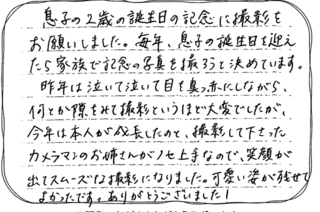 息子の2歳の誕生日の記念に撮影を
お願いしました。毎年、息子の誕生日を迎え
たら家族で記念の写真を撮ろうと決めています。
昨年は泣いて泣いて目を真っ赤にしながら、
何とか隙をみて撮影というほど大変でしたが、
今年は本人が成長したのと、撮影して下さった
カメラマンのお姉さんがノセ上手なので、笑顔が
出てスムーズな撮影になりました。可愛い姿が残せて
よかったです。ありがとうございました!